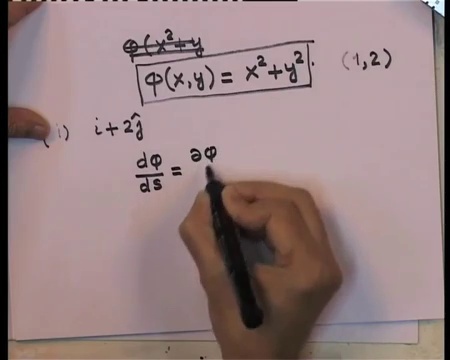 φ(x²+y
φ(x,y) = x²+y². (1,2)
(i) i+2ĵ
dφ/ds = ∂φ